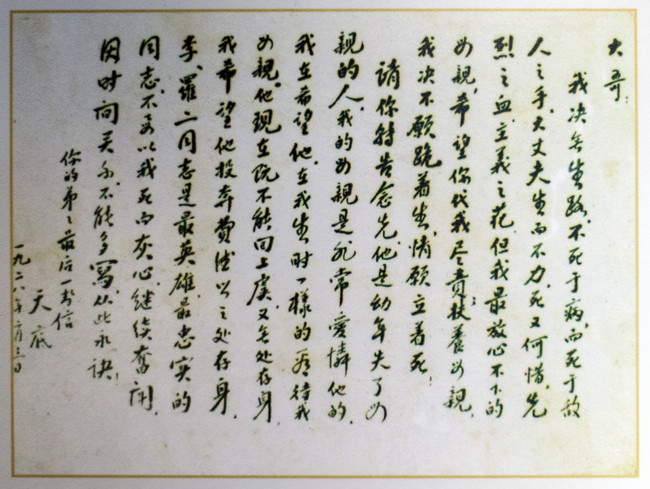 大哥：
我决无生路，不死于病，而死于敌
人之手，大丈夫生而不力，死又何惜，先
烈之血，主义之花，但我最放心不下的
母親，希望你代我尽责扶養母親，
我决不願跪着生，情願立着死！
請你轉告念先，他是幼年失了母
親的人，我的母親是非常愛憐他的，
我在希望他，在我生时一样的看待我
母親，他現在既不能回上虞，又无处存身，
我希望他投奔費德以之处存身，
李、羅二同志是最英雄最忠实的
同志，不要以我死而灰心，继续奮鬥，
因时间关系，不能多寫，从此永诀！
你的弟之最后一封信
天底
一九二八年 月 日